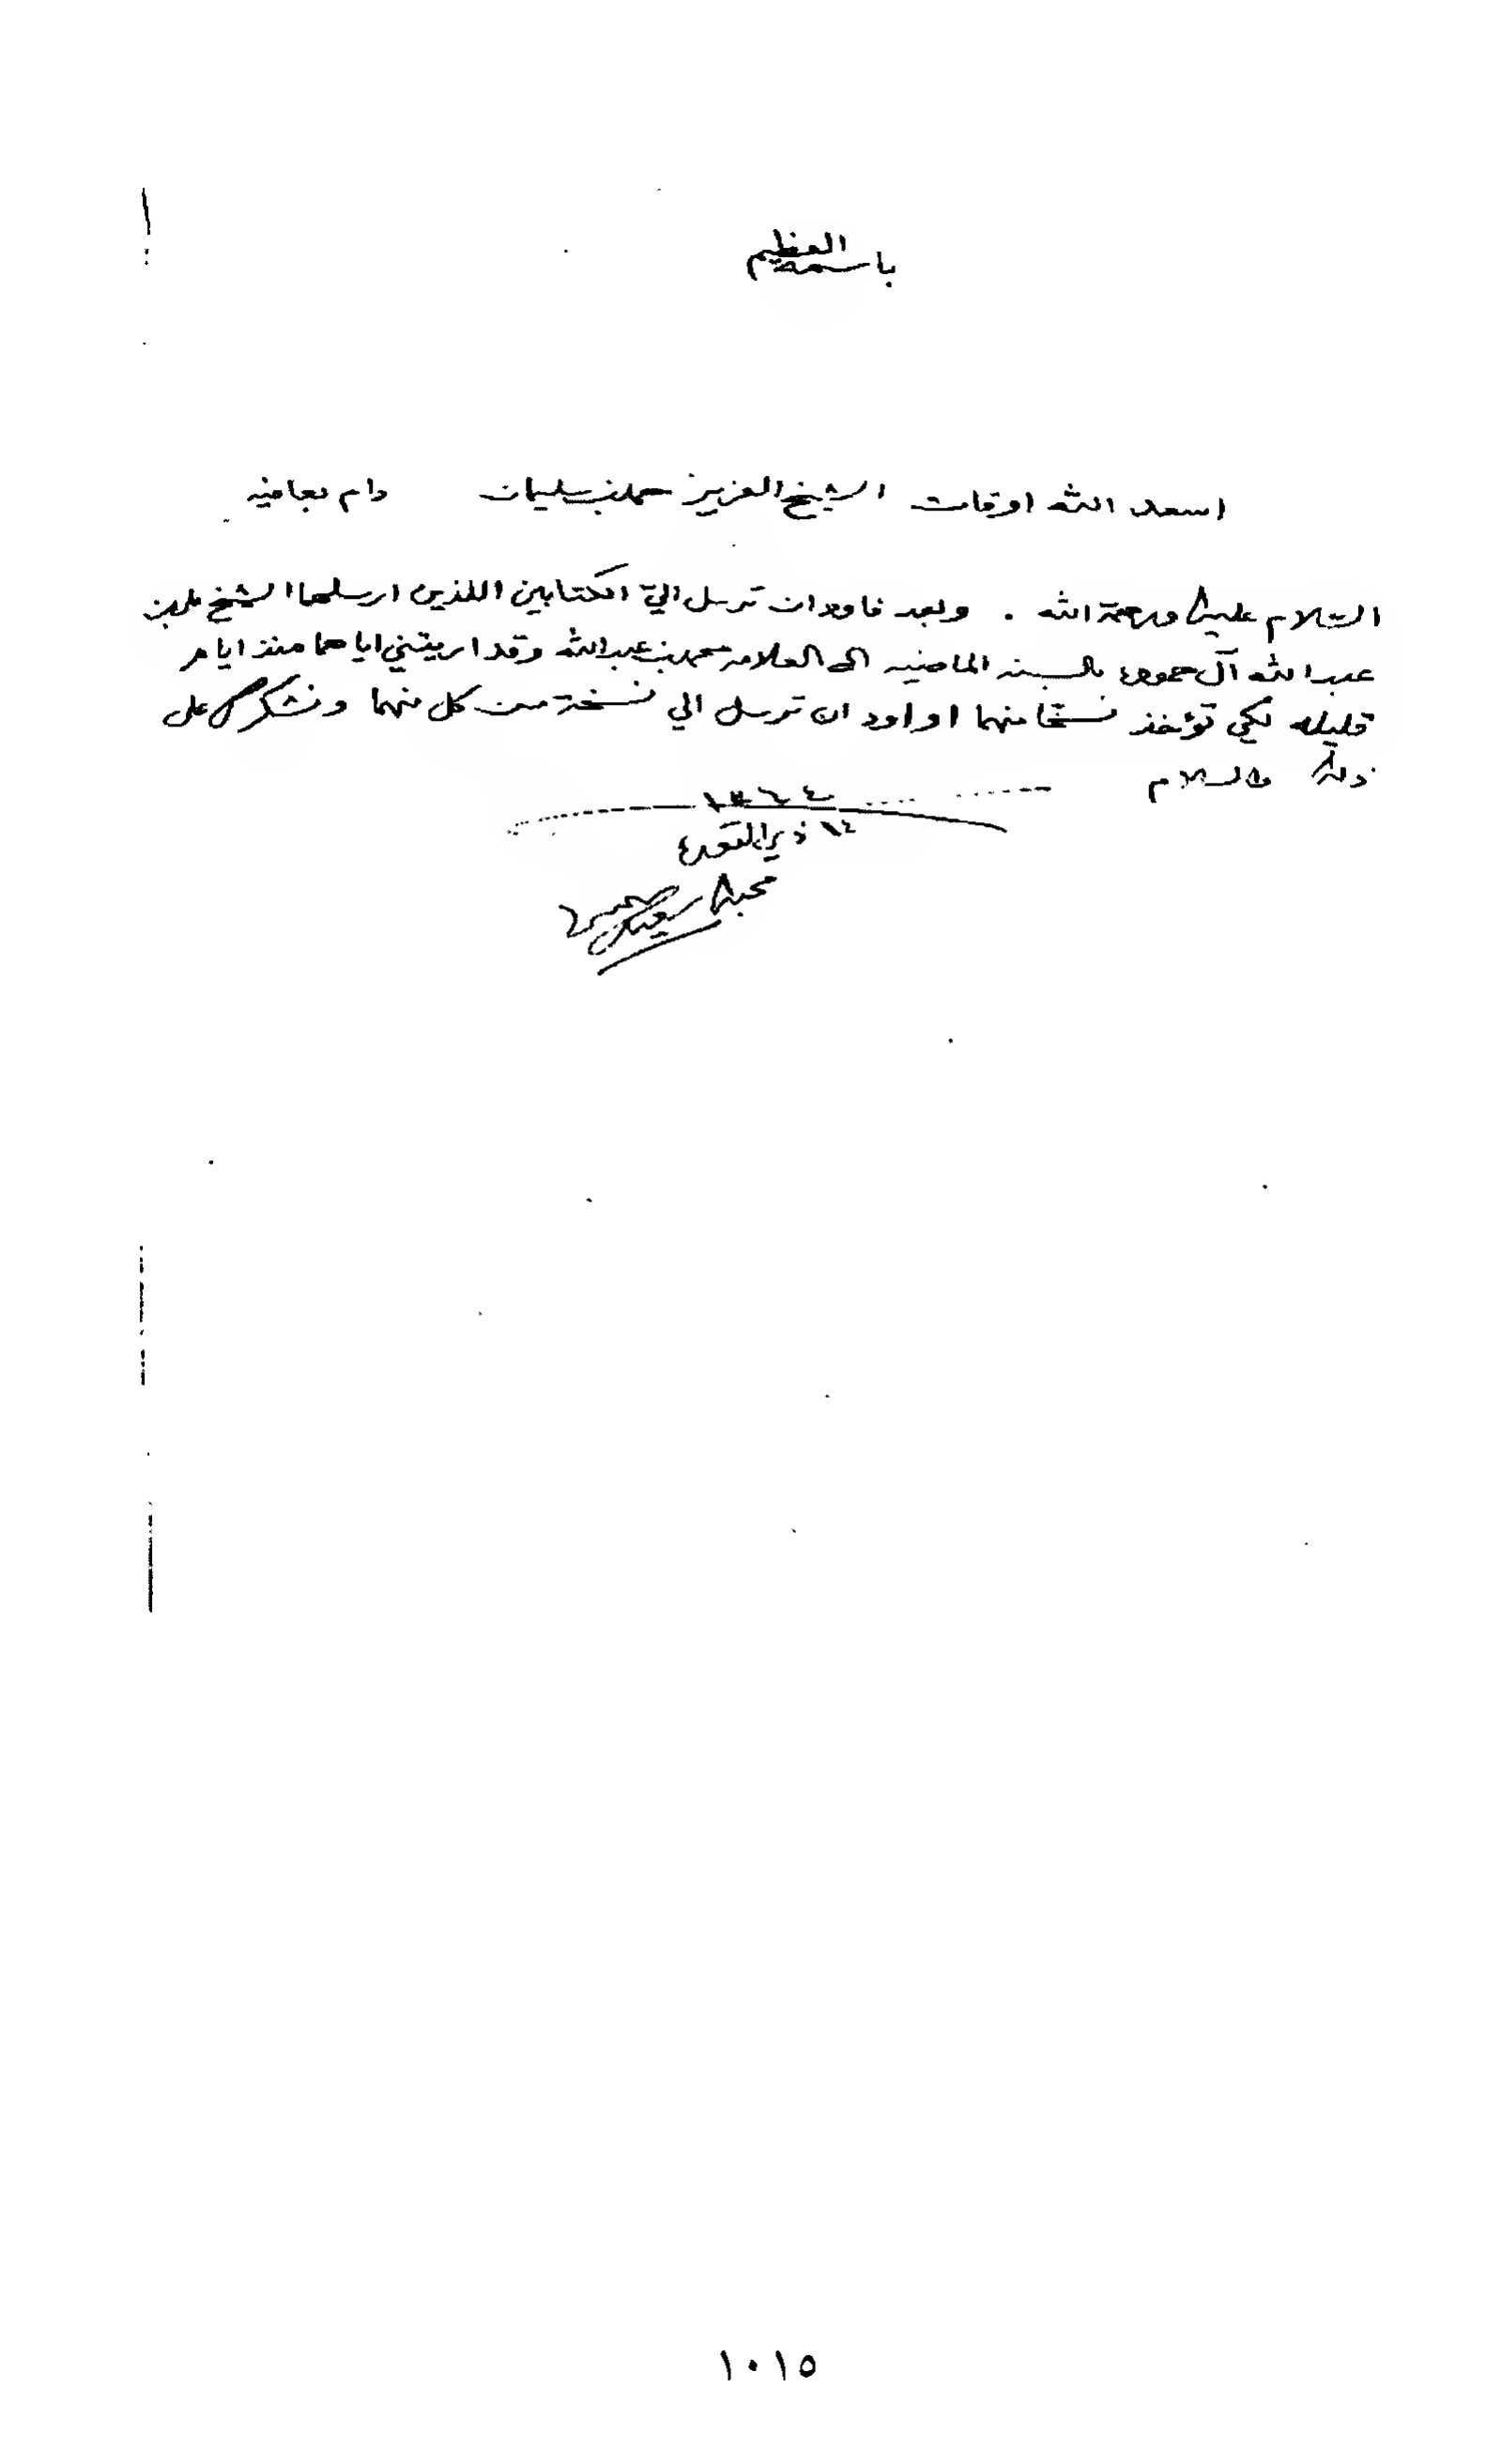 باسمه العظيم
اسعد الله اوقات الشيخ العزيز حمد بن سليمان دام بعافيه
السلام عليك ورحمة الله . وبعد فاود ان ترسل اليّ الكتابين اللذين ارسلهما الشيخ علي بن
عبدالله آل حموده بالسنه الماضيه الى العلامه محمد بن عبدالله وقد اريتني اياهما منذ ايام
قليله لكي تؤخذ نسخا منهما او اود ان ترسل الي نسخة من كل منهما ونشكرك على
ذلك والسلام
١٣٦٤
١٤ ذي القعدة
محبك سعيد
١٠١٥